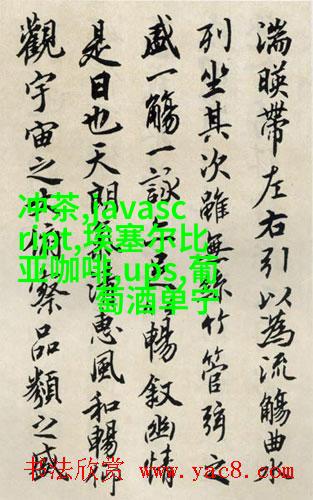 湍暎帶左右引以為流觴曲
列坐其次雖無絲竹管弦之
盛一觴一詠亦足暢敘幽情
是日也天朗清惠風和暢仰
觀宇宙之大俯察品類之盛
冲茶,javasc
ript,埃塞尔比
亚咖啡,ups,葡
萄酒单宁
书法欣赏 www.yac8.com